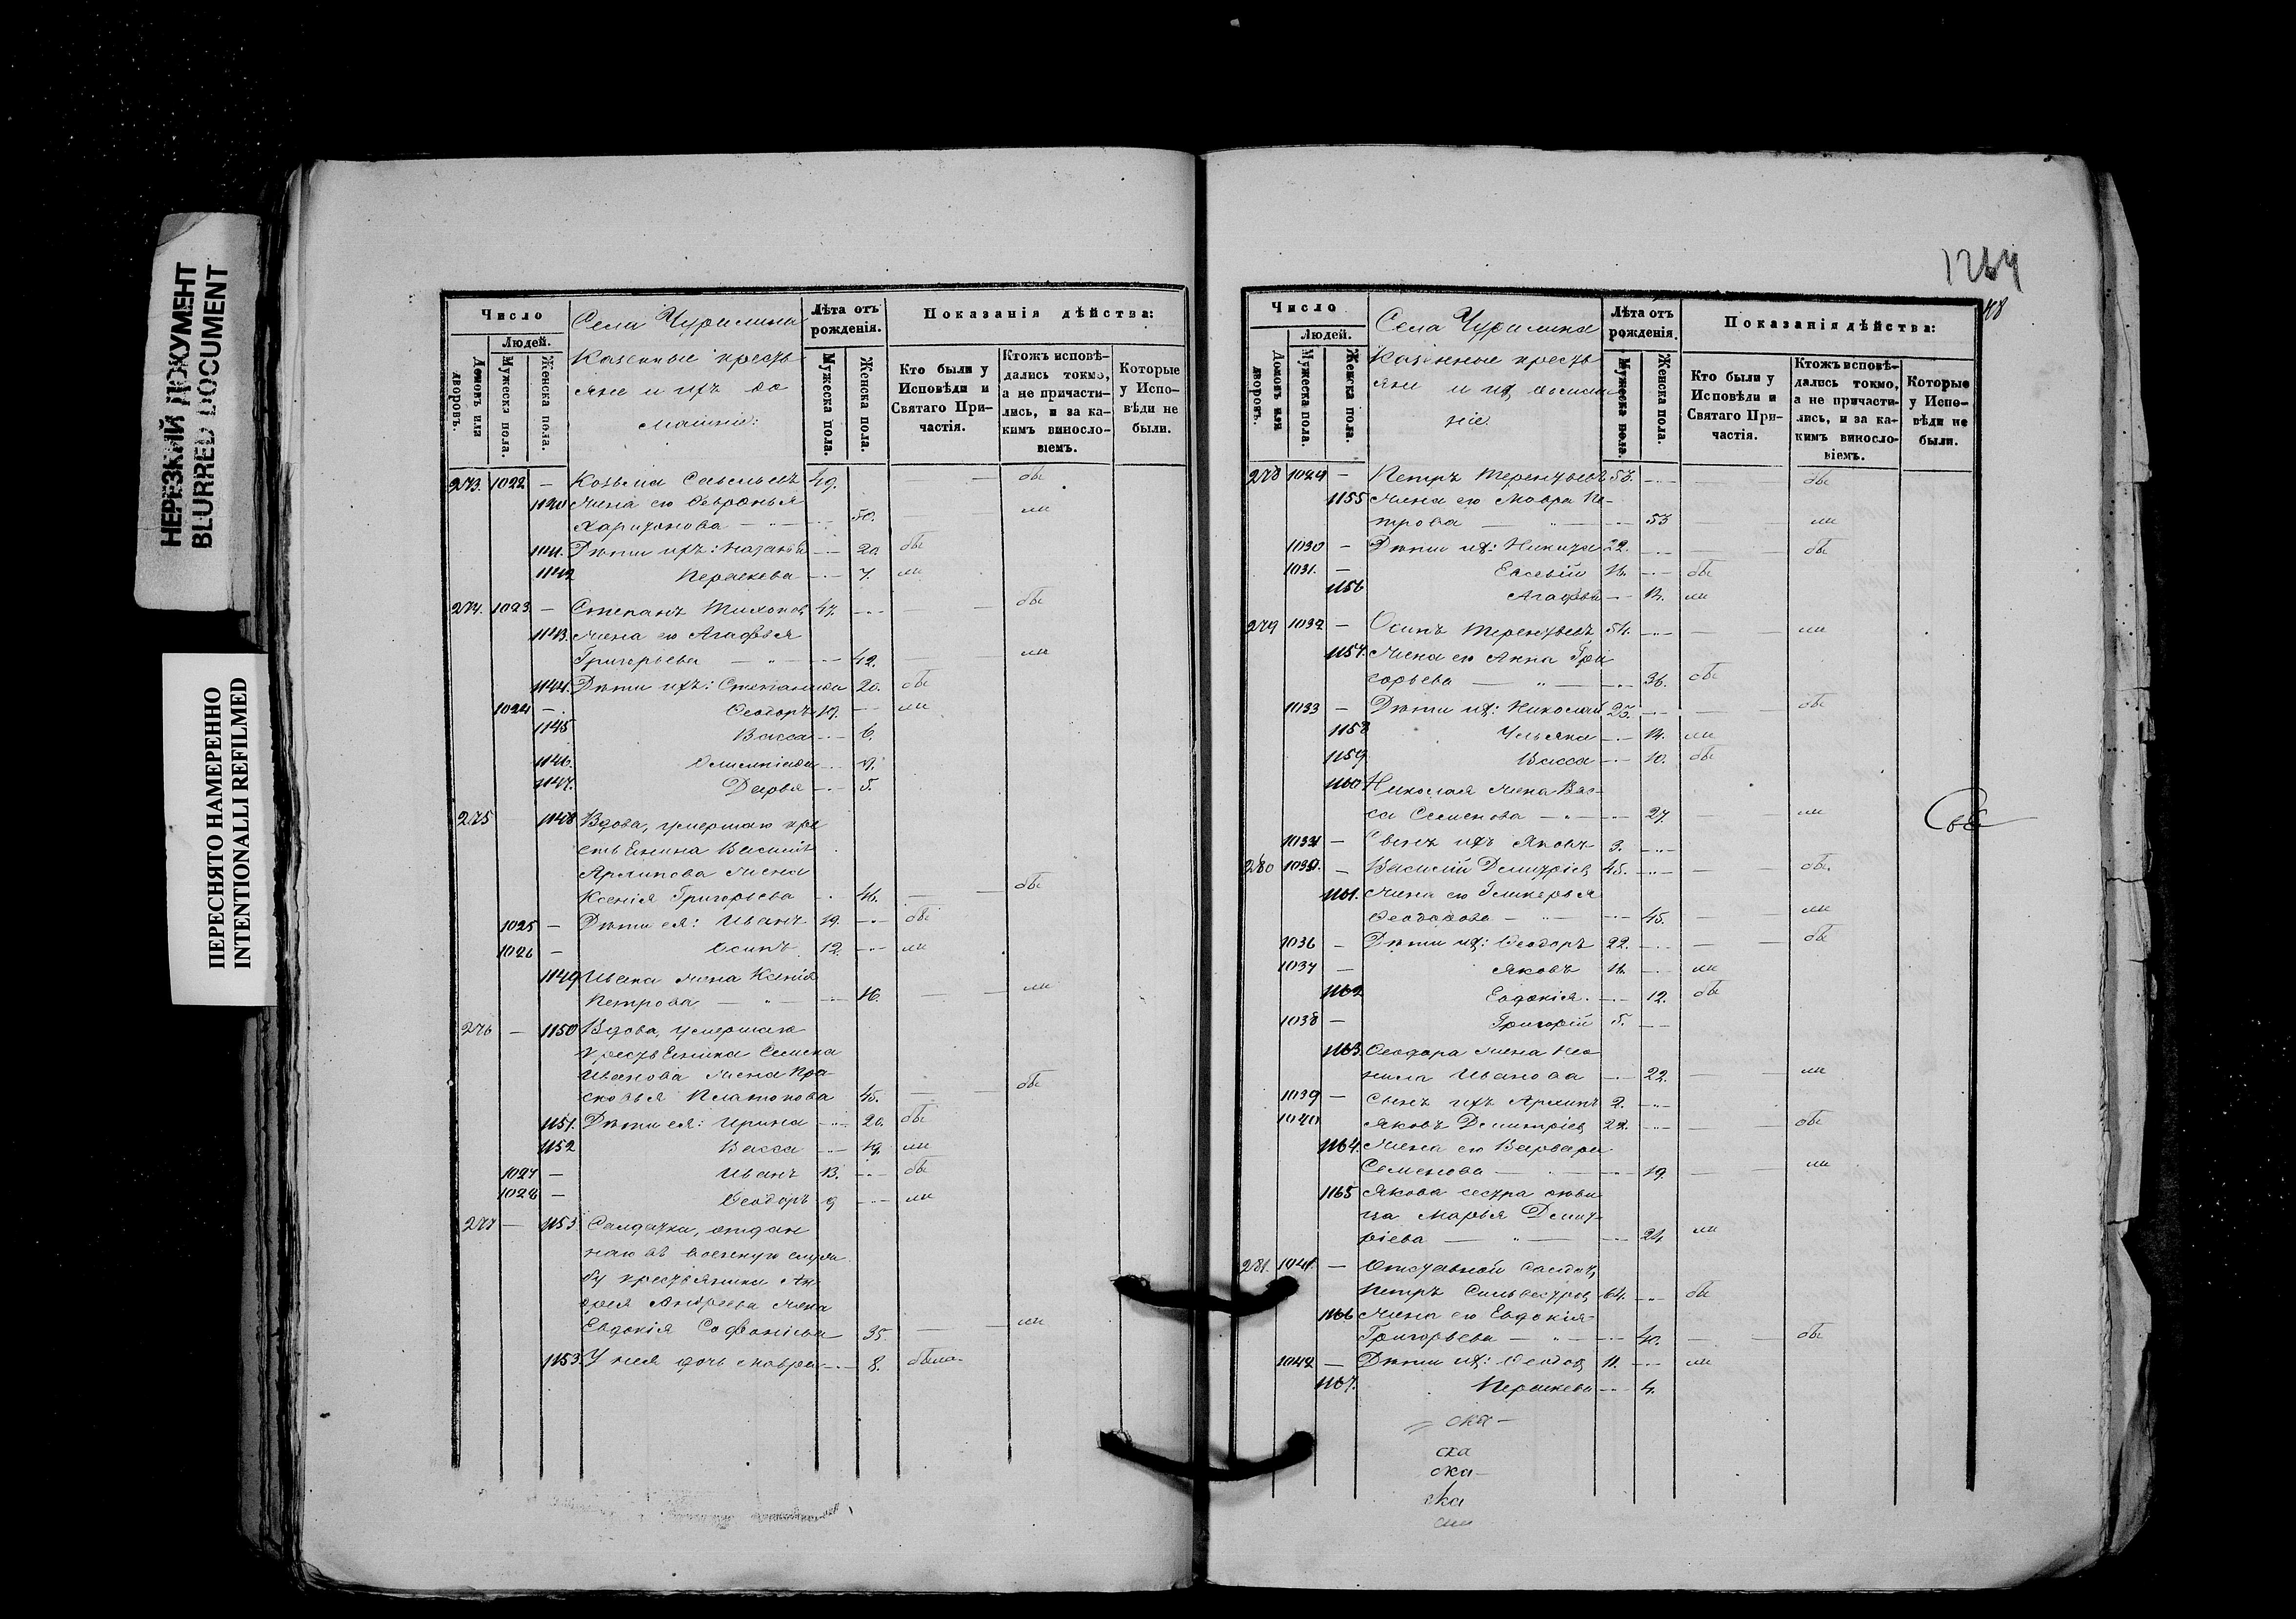 НЕРЕЗКИЙ ДОКУМЕНТ
BLURRED DOCUMENT
ПЕРЕСНЯТО НАМЕРЕННО
INTENTIONALLI REFILMED
Число
Людей.
Домовъ или дворовъ.
Мужеска пола.
Женска пола.
Села Чурилина
Казенные кресть
яне и ихъ до
машніе:
Лѣта отъ рожденія.
Мужеска пола.
Женска пола.
Показанія дѣйства:
Кто были у Исповѣди и Святаго Причастія.
Ктожъ исповѣ-
дались токмо,
а не причасти-
лись, и за ка-
кимъ виносло-
віемъ.
Которые
у Испо-
вѣди не
были.
273. 1022 — Козьма Савельевъ 49. — бы
1140 Жена его Февронья
Харитонова — 50. ли
1141. Дѣти ихъ: Наталья — 20. бы
1142 Параскева — 7. ли
274. 1023 — Степанъ Тихоновъ 47. — бы
1143. Жена его Агафья
Григорьева — 42. — ли
1144. Дѣти ихъ: Степанида 20. бы
1024 — Ѳеодоръ 19. — ли
1145 Васса — 6.
1146. Олимпіада — 9.
1147. Дарья — 5.
275 1148 Вдова, умершаго кре
стьянина Василія
Архипова жена
Ксенія Григорьева — 46. — бы
1025 — Дѣти ея: Иванъ 19. — бы
1026 — Осипъ 12. — ли
1149 Ивана жена Ксенія
Петрова — 16. — ли
276 — 1150 Вдова, умершаго
крестьянина Семена
Иванова жена Пра-
сковья Платонова 45. — бы
1151. Дѣти ея: Ирина — 20. бы
1152 Васса — 19. ли
1027 — Иванъ 13. — бы
1028 — Ѳеодоръ 9 — ли
277 — 1153 Салдатка, отдан
наго въ военную служ
бу крестьянина Ан
дрея Андреева жена
Евдокія Софоніева 35. — ли
1153. У нея дочь Мавра — 8. была.
1264
48
Число
Людей.
Домовъ или дворовъ.
Мужеска пола.
Женска пола.
Села Чурилина
Казенные кресть
яне и ихъ домаш
ніе.
Лѣта отъ рожденія.
Мужеска пола.
Женска пола.
Показанія дѣйства:
Кто были у Исповѣди и Святаго При-частія.
Ктожъ исповѣ-
дались токмо,
а не причасти-
лись, и за ка-
кимъ виносло-
віемъ.
Которые
у Испо-
вѣди не
были.
278 1029 — Петръ Терентьевъ 53. — бы
1155 Жена его Мавра Пе-
трова — 53 — ли
1030 — Дѣти ихъ: Никита 22. — бы
1031. — Евсевій 16. — бы
1156 Агафья — 14. ли
279 1032 — Осипъ Терентьевъ 54. — ли
1157. Жена его Анна Гри
горьева — 36. бы
1033 — Дѣти ихъ: Николай 23. — бы
1158 Ульяна — 14. ли
1159 Васса — 10. бы
1160 Николая жена Вас-
са Семенова — 27. — ли
1034 — Сынъ ихъ Яковъ 3. —
280 1035. — Василій Димитріевъ 45. — бы.
1161. Жена его Гликерья
Ѳеодорова — 45. — ли
1036 — Дѣти ихъ: Ѳеодоръ 22. — бы
1037 — Яковъ 16. — ли
1162 Евдокія. — 12. бы
1038 — Григорій 5. —
1163. Ѳеодора жена Нео
нила Иванова — 22. — ли
1039 — Сынъ ихъ Архипъ 2. —
1040 Яковъ Димитріевъ 22. — бы
1164. Жена его Варвара
Семенова — 19. — ли
1165 Якова сестра дѣви
ца Марья Димит-
ріева — 24 ли
281. 1041. — Отставной салдатъ
Петръ Сильвестровъ 64. — бы
1166 Жена его Евдокія
Григорьева — 40. — бы
1042 — Дѣти ихъ: Ѳеодоръ 11. — ли
1167. Параскева — 4.
ска —
ска
ска —
ска